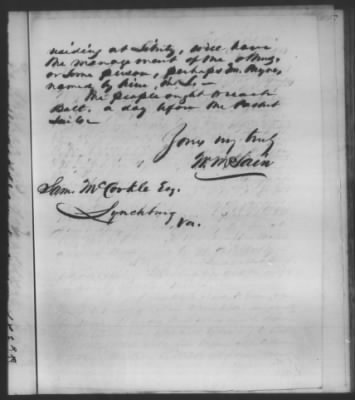 residing at Liberty, will have
the management of the thing,
or some person, perhaps
named by him,
The people ought to reach
Balt. a day before the Packet
Sails
Yours very truly
W. McLain
Sam. McCorkle Esq.
Lynchburg
Va.